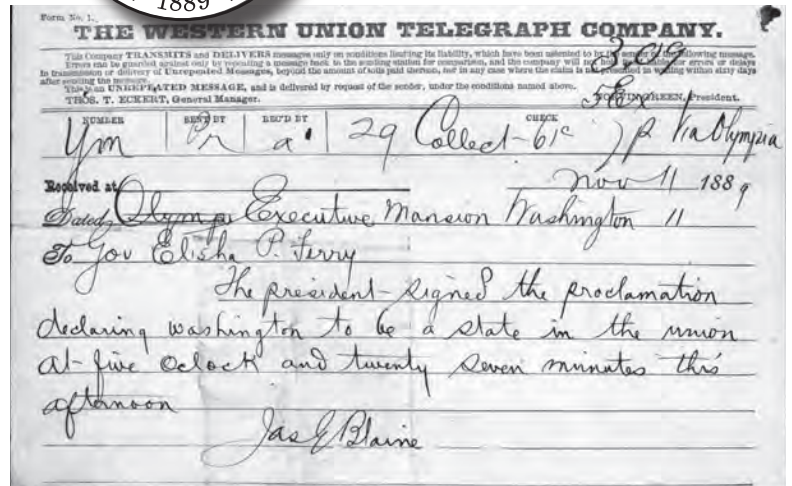 1889
Form No. 1.
THE WESTERN UNION TELEGRAPH COMPANY.
This Company TRANSMITS and DELIVERS messages only on conditions limiting its liability, which have been assented to by the sender of the following message.
Errors can be guarded against only by repeating a message back to the sending station for comparison, and the company will not hold itself liable for errors or delays
in transmission or delivery of Unrepeated Messages, beyond the amount of tolls paid thereon, nor in any case where the claim is not presented in writing within sixty days
after sending the message.
This is an UNREPEATED MESSAGE, and is delivered by request of the sender, under the conditions named above.
THOS. T. ECKERT, General Manager. NORVIN GREEN, President.
NUMBER SENT BY REC'D BY CHECK
29 Collect Via Olympia
Received at Nov 11 1889
Dated Executive Mansion Washington 11
To Gov Elisha P. Ferry
The president signed the proclamation
declaring washington to be a state in the union
at five oclock and twenty seven minutes this
afternoon
Jas G Blaine